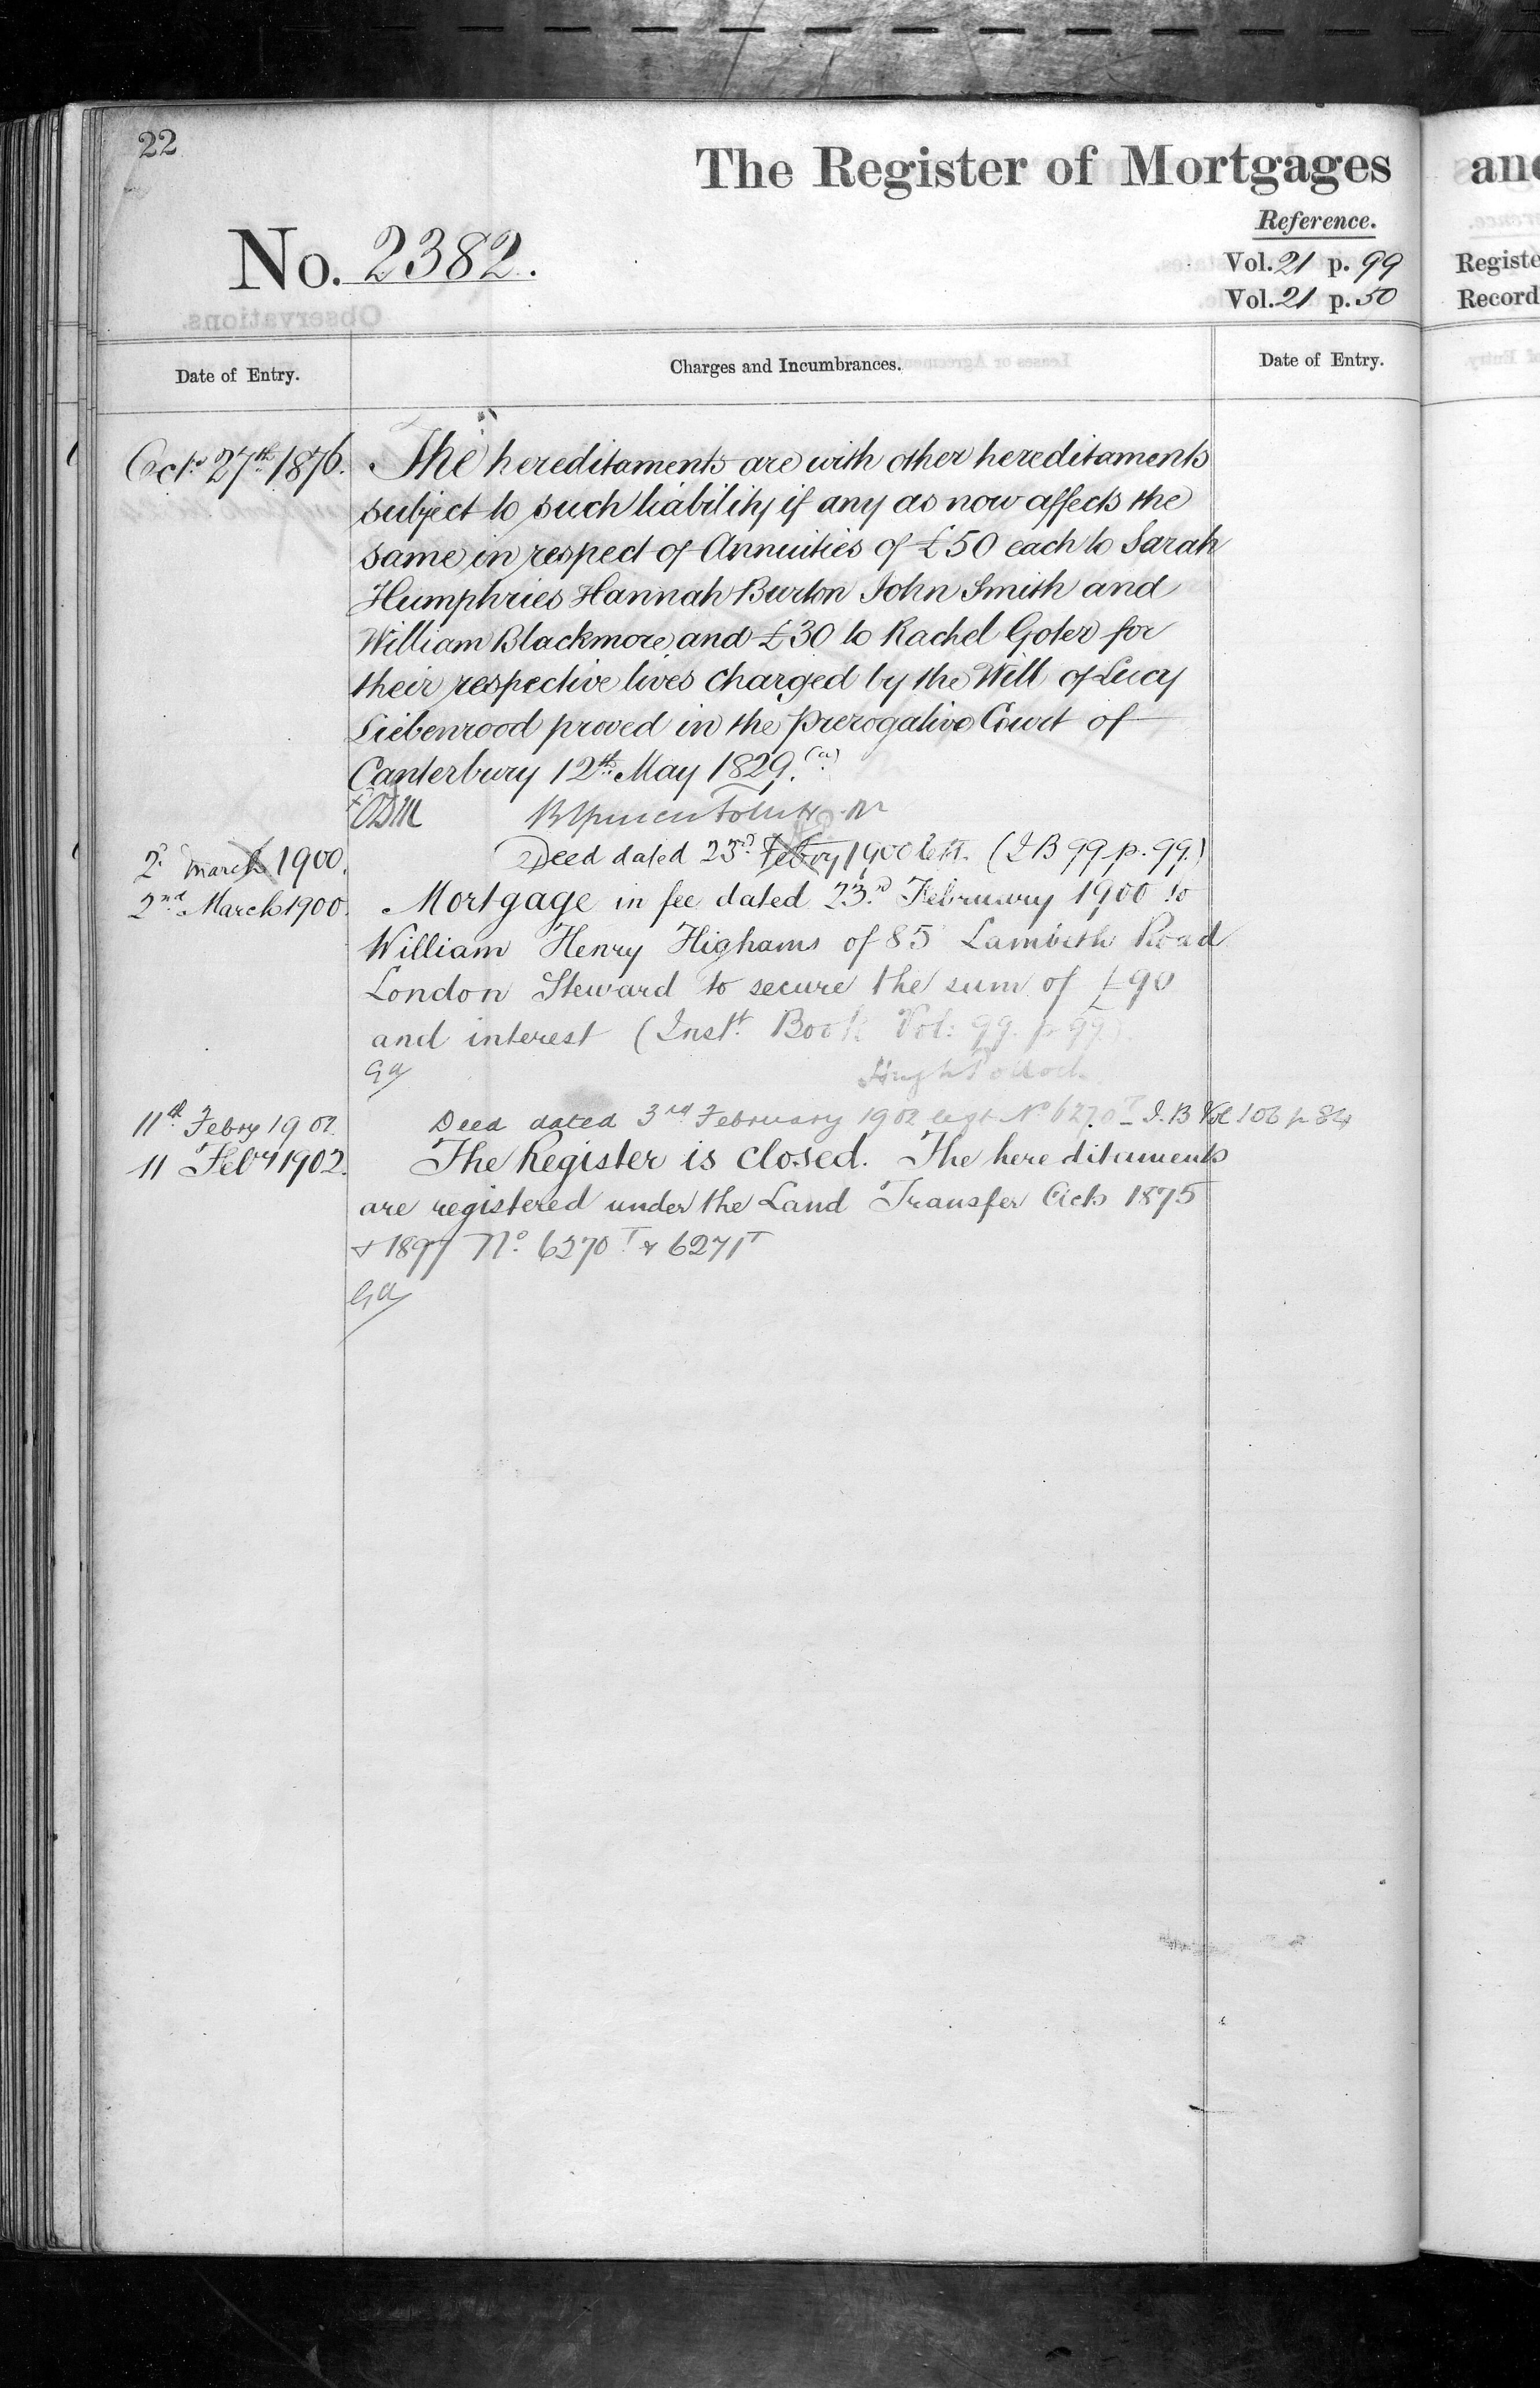 22
The Register of Mortgages
Reference.
No. 2382.
Vol. 21 p. 99
Vol. 21 p. 50
Date of Entry.
Charges and Incumbrances.
Date of Entry.
Oct.r 27th 1876. The hereditaments are with other hereditaments
subject to such liability if any as now affects the
same in respect of Annuities of £50 each to Sarah
Humphries Hannah Burton John Smith and
William Blackmore and £30 to Rachel Goter for
their respective lives charged by the Will of Lucy
Liebenrood proved in the Prerogative Court of
Canterbury 12th May 1829. (a)
2d March 1900. Deed dated 23rd Febry 1900 left. (I B 99 p. 99.)
2nd March 1900. Mortgage in fee dated 23rd February 1900 to
William Henry Highams of 85 Lambeth Road
London Steward to secure the sum of £90
and interest (Inst. Book Vol: 99. p 99.)
Ga
Hugh Pollock
11th Febry 1902 Deed dated 3rd February 1902 No 6270T - I. B Vol 106 p 84
11 Feby 1902. The Register is closed. The hereditaments
are registered under the Land Transfer Acts 1875
& 1897 No. 6270T & 6271T
Ga
and
Registe
Record